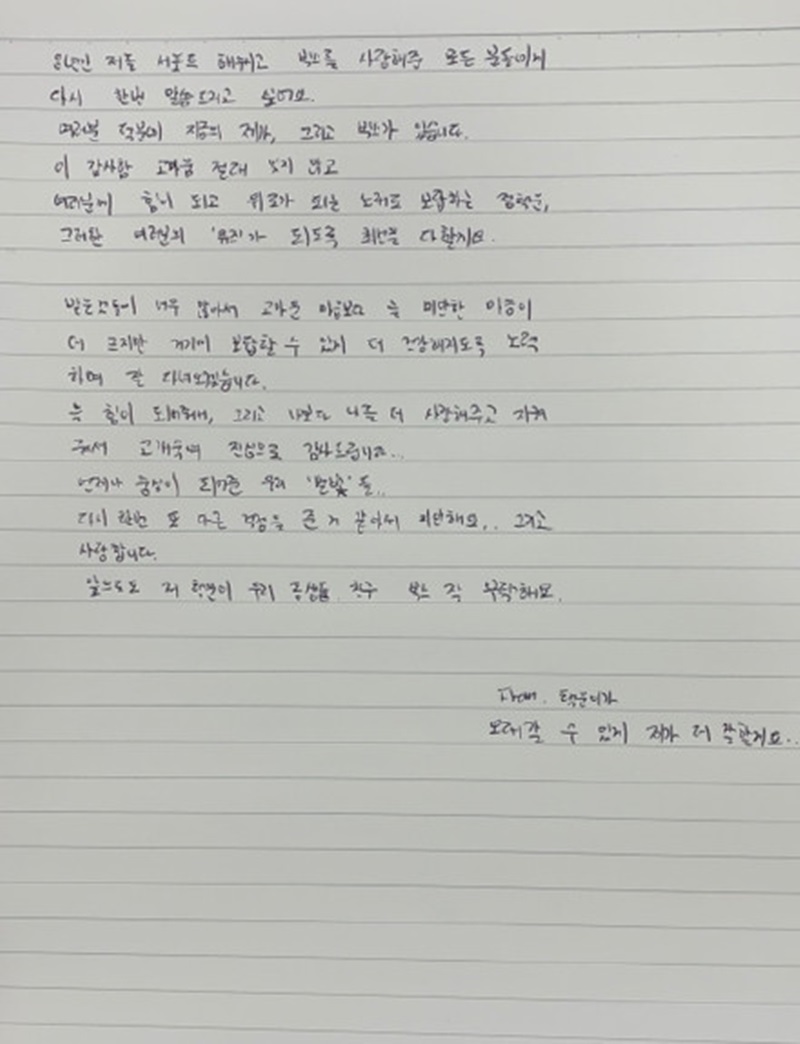 8년간 저를 서포트 해주시고 빅스를 사랑해주 모든 분들에게
다시 한번 말씀드리고 싶어요.
여러분 덕분에 지금의 제가, 그리고 빅스가 있습니다.
이 감사함 고마움 절대 잊지 않고
여러분에 힘이 되고 위로가 되는 노래로 보답하는 정택운,
그러한 여러분의 '뮤지'가 되도록 최선을 다할게요.
받은 것들이 너무 많아서 고마운 마음보다 늘 미안한 마음이
더 크지만 거기에 보답할 수 있게 더 건강해지도록 노력
하며 잘 다녀오겠습니다.
늘 힘이 되어줘서, 그리고 나보다 나를 더 사랑해주고 지켜
줘서 고개숙여 진심으로 감사드립니다..
언제나 중심이 되어준 우리 '별빛'들..
다시 한번 또 다른 걱정을 준 거 같아서 미안해요.. 그리고
사랑합니다.
앞으로도 저 우리 빅스 잘 부탁해요.
택운이가
오래갈 수 있게 제가 더 잘할게요..